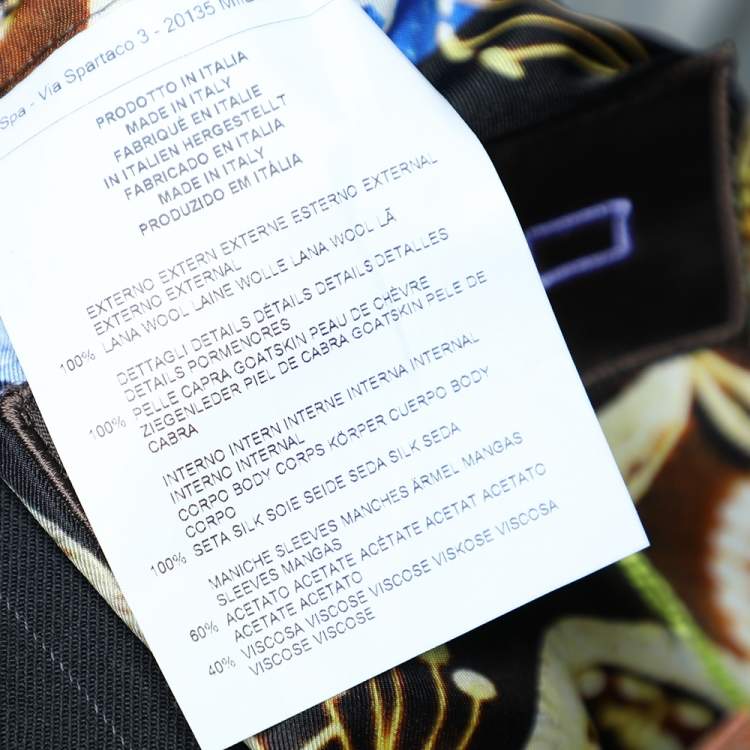 Spa - Via Spartaco 3 - 20135
PRODOTTO IN ITALIA
MADE IN ITALY
FABRIQUÉ EN ITALIE
IN ITALIEN HERGESTELLT
FABRICADO EN ITALIA
MADE IN ITALY
PRODUZIDO EM ITÁLIA
EXTERNO EXTERN EXTERNE ESTERNO EXTERNAL
EXTERNO EXTERNAL
100% LANA WOOL LAINE WOLLE LANA WOOL LÃ
DETTAGLI DETAILS DÉTAILS DETAILS DETALLES
DETAILS PORMENORES
100% PELLE CAPRA GOATSKIN PEAU DE CHÈVRE
ZIEGENLEDER PIEL DE CABRA GOATSKIN PELE DE
CABRA
INTERNO INTERN INTERNE INTERNA INTERNAL
INTERNO INTERNAL
CORPO BODY CORPS KÖRPER CUERPO BODY
CORPO
100% SETA SILK SOIE SEIDE SEDA SILK SEDA
MANICHE SLEEVES MANCHES ÄRMEL MANGAS
SLEEVES MANGAS
60% ACETATO ACETATE ACÉTATE ACETAT ACETATO
ACETATE ACETATO
40% VISCOSA VISCOSE VISCOSE VISKOSE VISCOSA
VISCOSE VISCOSE